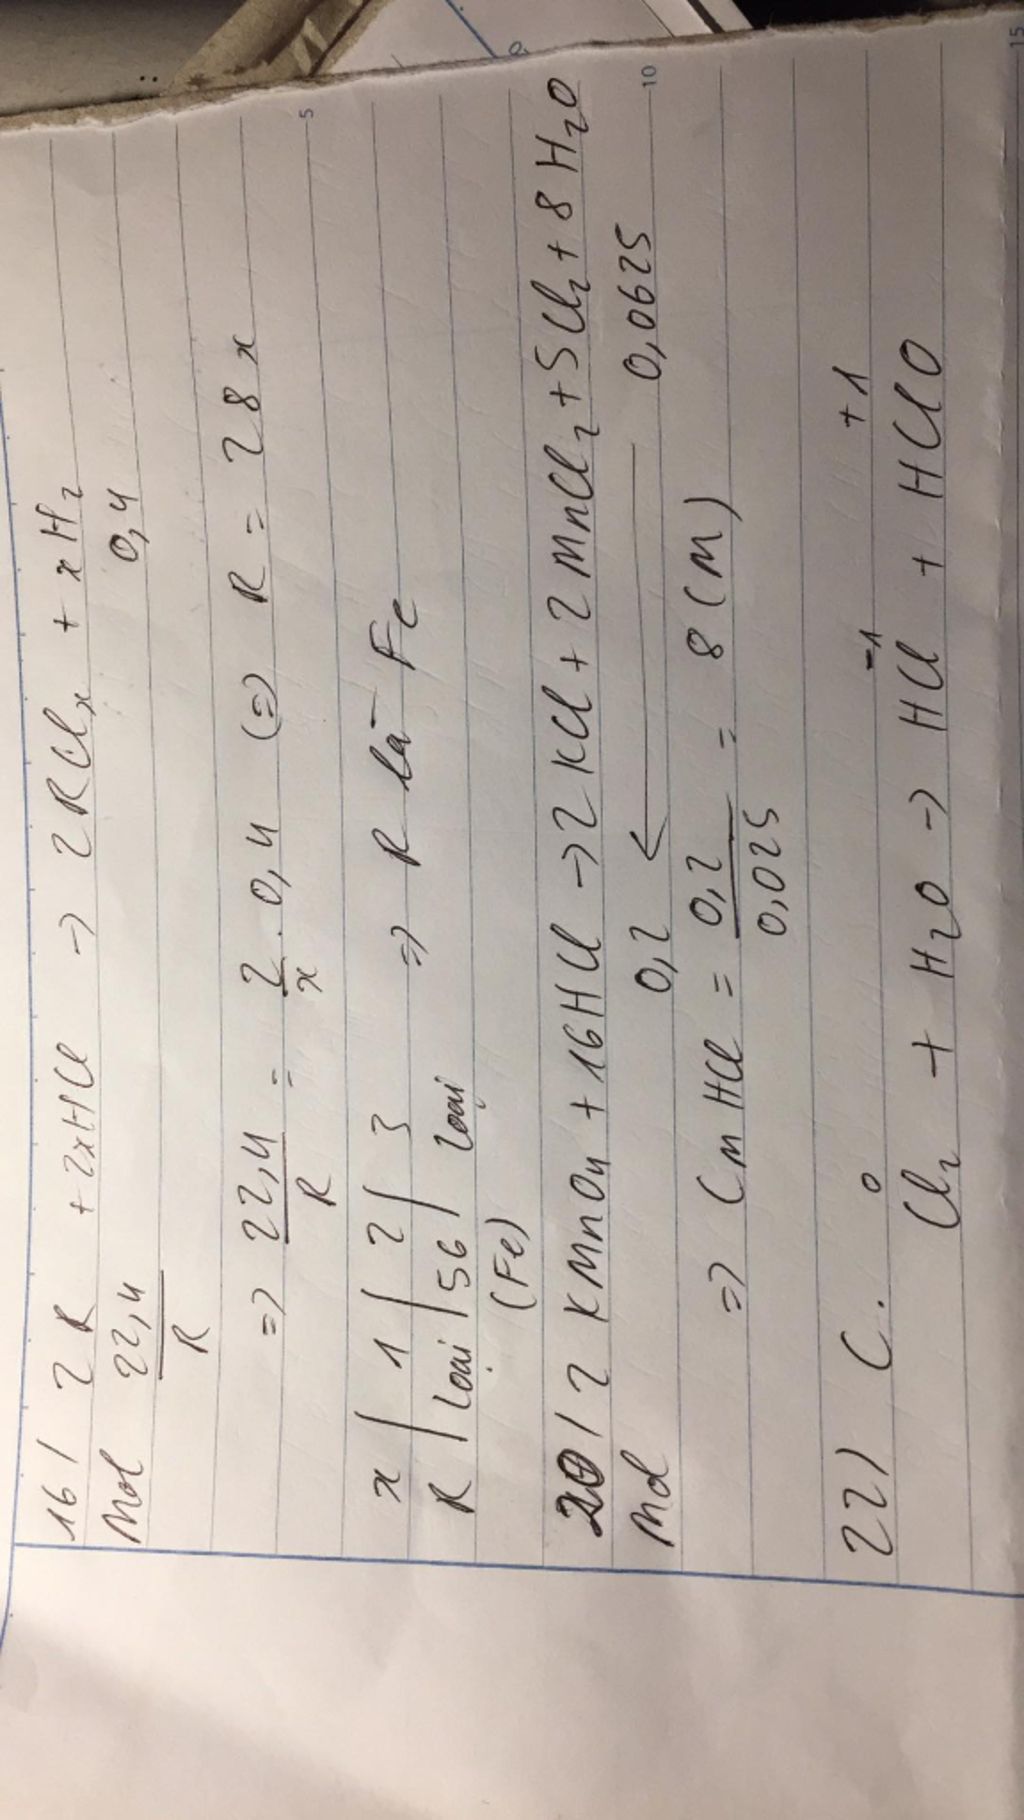 16/ 2R + 2xHCl -> 2RClₓ + xH₂
Mol 22,4/R 0,4
=> 22,4/R = 2/x . 0,4 (=) R = 28x
x | 1 | 2 | 3
R | loại | 56 | loại => R là Fe
(Fe)
20/ 2KMnO₄ + 16HCl -> 2KCl + 2MnCl₂ + 5Cl₂ + 8H₂O
Mol 0,2 <— 0,0625
=> CM HCl = 0,2/0,025 = 8 (M)
22) C. 0 -1 +1
Cl₂ + H₂O -> HCl + HClO
5
10
15